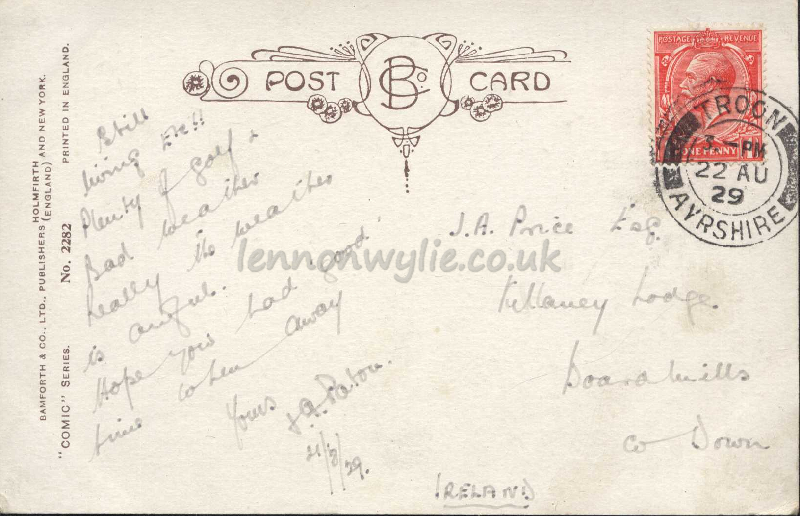 BAMFORTH & CO., LTD., PUBLISHERS HOLMFIRTH
(ENGLAND) AND NEW YORK.
"COMIC" SERIES. No. 2282 PRINTED IN ENGLAND.
POST BCo. CARD
POSTAGE REVENUE
ONE PENNY
TROON
PM
22 AU
29
AYRSHIRE
Still
living
Plenty of golf &
Bad weather
Really the weather
is awful.
Hope you had good
time when away
Yours
Paton.
21/8/29.
J.A. Price Esq.
Killaney Lodge.
Boardmills
Co Down
IRELAND
lennonwylie.co.uk